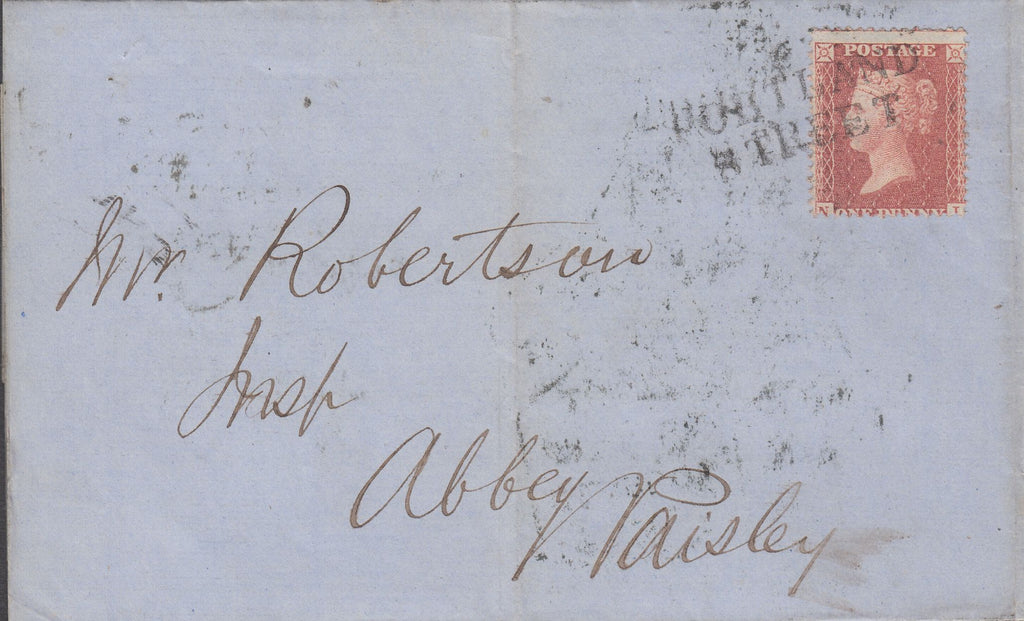 POSTAGE
PORTLAND
STREET
N ONE PENNY I
Mr. Robertson
Insp
Abbey Paisley